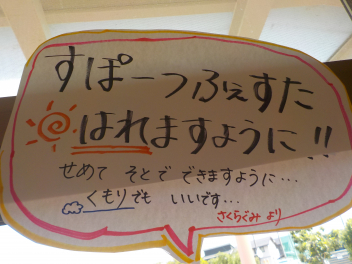 すぽーつふぇすた
はれますように!!
せめて そとで できますように…
くもりでも いいです…
さくらぐみ より